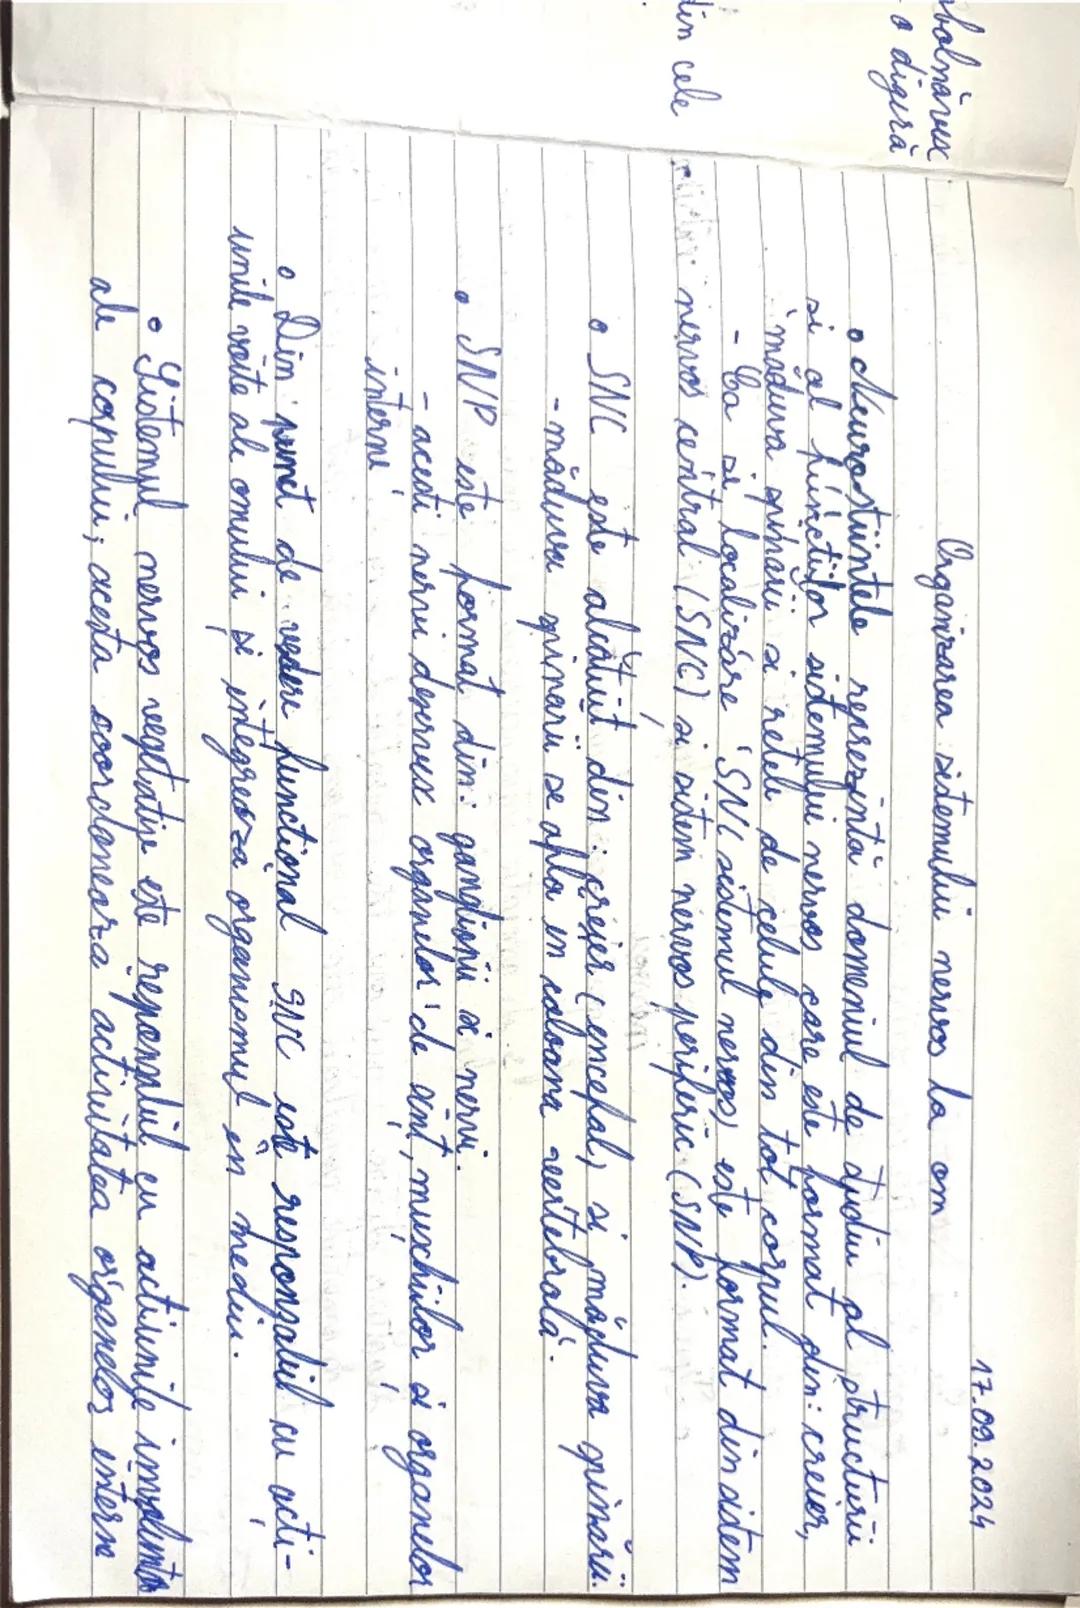 17.09.2024
Organizarea sistemului nervos la om
• Neuroștiințele reprezintă domeniul de studiu al structurii
și al funcțiilor sistemului nervos care este format din: creier,
măduva spinării și rețele de celule din tot corpul.
- Ca și localizare SNC (sistemul nervos) este format din sistem
nervos central (SNC) și sistem nervos periferic (SNP).
• SNC este alcătuit din: creier (encefal) și măduva spinării.
- măduva spinării se afla în coloana vertebrală.
• SNP este format din: ganglionii și nervi.
- acești nervi deservesc organelor de simț, mușchilor și organelor
interni
• Din punct de vedere funcțional SNC este responsabil cu acti-
unile voite ale omului și integrează organismul în mediu.
• Sistemul nervos vegetativ este responsabil cu acțiunile
ale corpului; acesta coordonează activitatea organelor interne
abolnăvex
o digeră
din cele